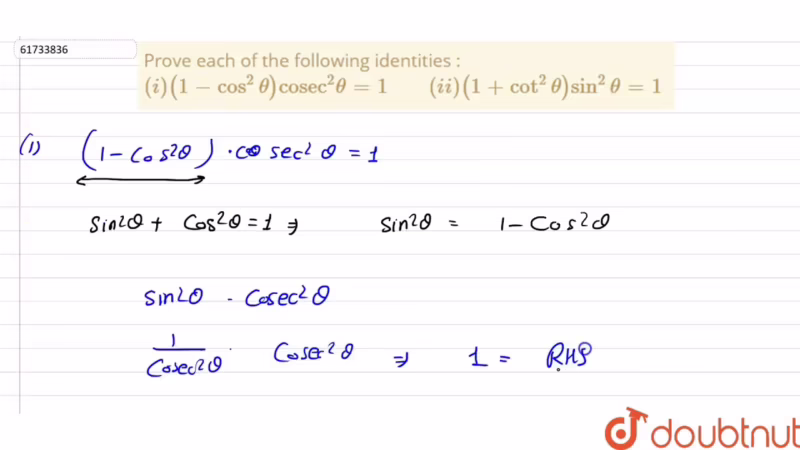 61733836
Prove each of the following identities :
(i)(1 − cos² θ)cosec²θ = 1 (ii)(1 + cot² θ)sin² θ = 1
(1) (1 - Cos²θ) · co sec² θ = 1
Sin²θ + Cos²θ = 1 ⇒ Sin²θ = 1 - Cos²θ
Sin²θ · Cosec²θ
1/Cosec²θ · Cosec²θ ⇒ 1 = RHS
doubtnut